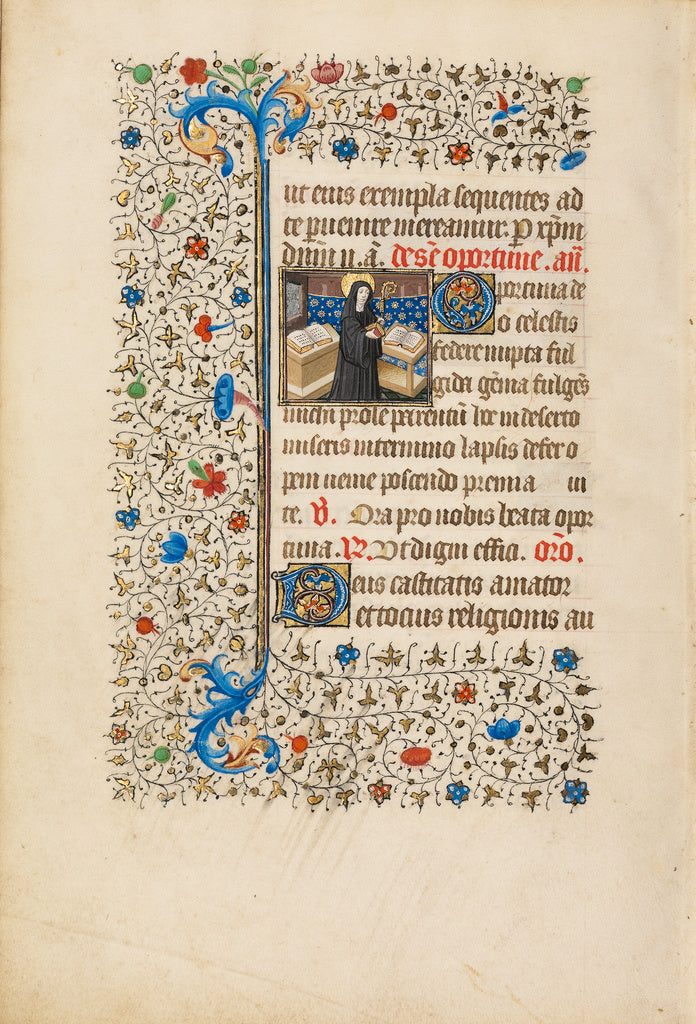 ut eius exempla sequentes ad
te puenire mereamur. P xpm
dnm n. a. de sce oportune. añ.
Oportuna de
o celestis
federe nupta ful
gida gema fulges
prole parentu lux in deserto
miseris in termino lapsis defer o
pem neme poscendo premia in
te. V. Ora pro nobis beata opor
tuna. R. Ut digni effici. oro.
Deus castitatis amator
et tocius religionis au